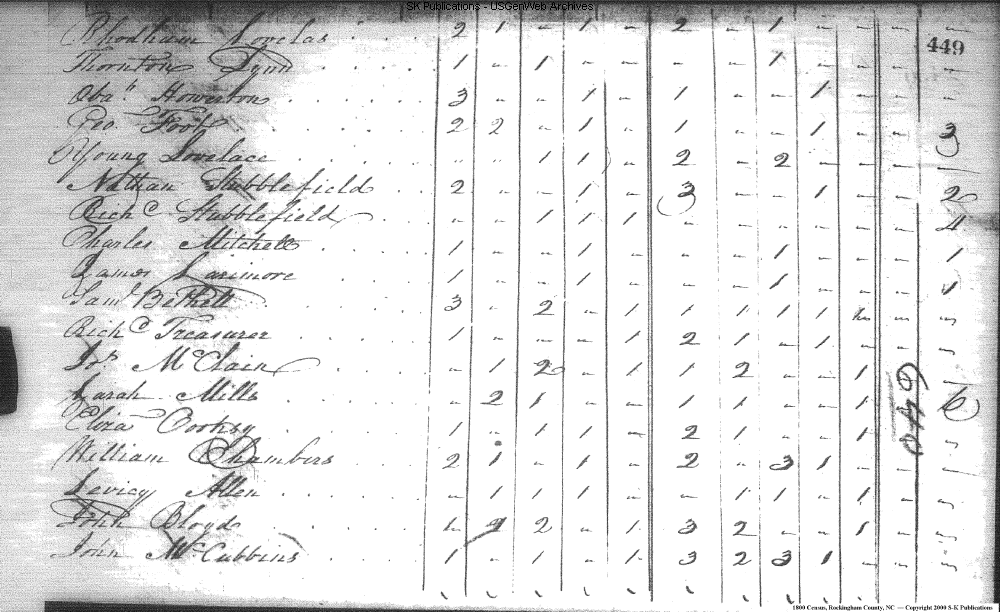 SK Publications - USGenWeb Archives
449
Rhodham Lovelas 2 1 - 1 - 2 - 1 - - -
Thornton Lynn 1 - 1 - - - - 1 - - - -
Oba.h Howerton 3 - - 1 - 1 - - 1 - - -
Geo. Fool 2 2 - 1 - 1 - - 1 - - 3
Young Lovelace - - 1 1 2 - 2 - - -
Nathan Stubblefield 2 - - 1 - 3 - - 1 - - 2
Rich.d Stubblefield - - 1 1 1 - - - - - - 4
Charles Mitchell 1 - - 1 - - - 1 - - - 1
James Larimore 1 - - 1 - - - 1 - - - 1
Sam.l Bethell 3 - 2 - 1 1 1 1 1 - -
Rich.d Treasurer 1 - - - 1 2 1 - 1 - - -
Jo.s McClain - 1 2 - 1 1 2 - - 1 -
Sarah Mills - 2 1 - - 1 1 - - 1 - 6
Eliza 1 - 1 1 - 2 1 - - 1 -
William Chambers 2 1 - 1 - 2 - 3 1 - - -
Levicy Allen - 1 1 1 - - 1 1 - 1 - -
John Bloyd - 2 2 - 1 3 2 - - 1 - -
John McCubbins 1 - 1 - 1 3 2 3 1 - - -
1800 Census, Rockingham County, NC — Copyright 2000 S-K Publications